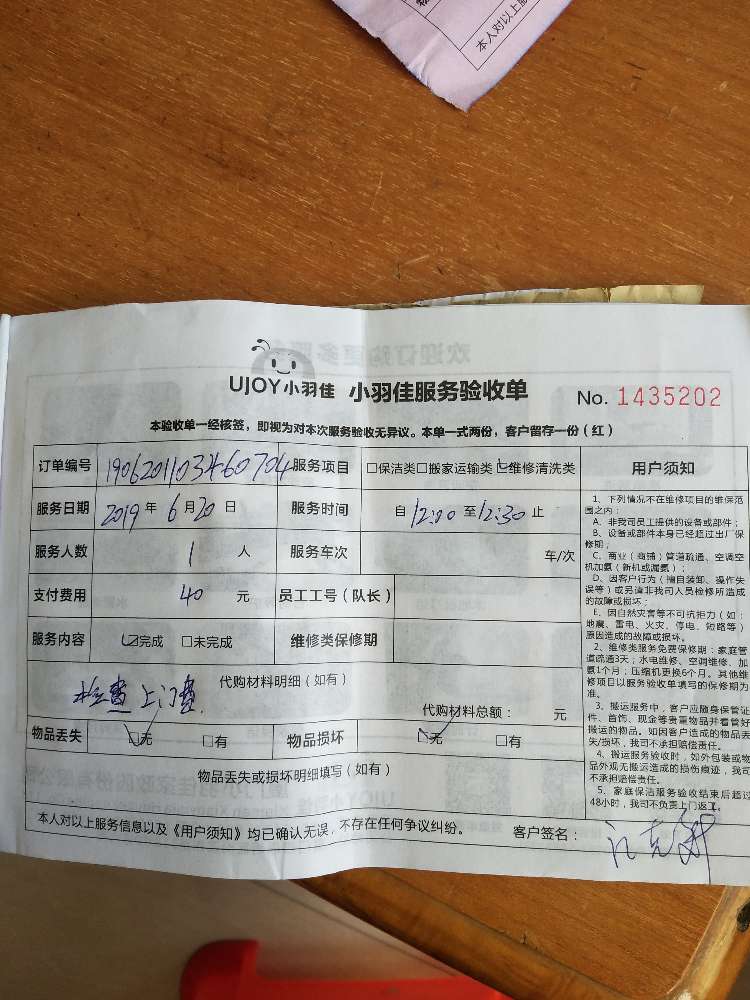 本人对以上
UJOY小羽佳 小羽佳服务验收单 No. 1435202
本验收单一经核签，即视为对本次服务验收无异议。本单一式两份，客户留存一份（红）
订单编号 1906201103460704 服务项目 □保洁类□搬家运输类☑维修清洗类 用户须知
服务日期 2019年6月20日 服务时间 自12:00至12:30止
服务人数 1 人 服务车次 车/次
支付费用 40 元 员工工号（队长）
服务内容 ☑完成 □未完成 维修类保修期
代购材料明细（如有）
检查上门费
代购材料总额： 元
物品丢失 ☑无 □有 物品损坏 ☑无 □有
物品丢失或损坏明细填写（如有）
本人对以上服务信息以及《用户须知》均已确认无误，不存在任何争议纠纷。 客户签名：
1、下列情况不在维修项目的维保范
围之内：
A、非我司员工提供的设备或部件；
B、设备或部件本身已经超过出厂保
修期；
C、商业（商铺）管道疏通、空调空
机加氨（新机或漏氨）；
D、因客户行为（擅自装卸、操作失
误等）或另请非我司人员检修所造成
的故障或损坏；
E、因自然灾害等不可抗拒力（如：
地震、雷电、火灾、停电、短路等）
原因造成的故障或损坏。
2、维修类服务免费保修期：家庭管
道疏通3天；水电维修、空调维修、加
氨1个月；压缩机更换6个月。其他维
修项目以服务验收单填写的保修期为
准。
3、搬运服务中，客户应随身保管证
件、首饰、现金等贵重物品并看管好
搬运的物品。如因客户造成的物品丢
失/损坏，我司不承担赔偿责任。
4、搬运服务验收时，如外包装或物
品外观无搬运造成的损伤痕迹，我司
不承担赔偿责任。
5、家庭保洁服务验收结束后超过
48小时，我司不负责上门返工。